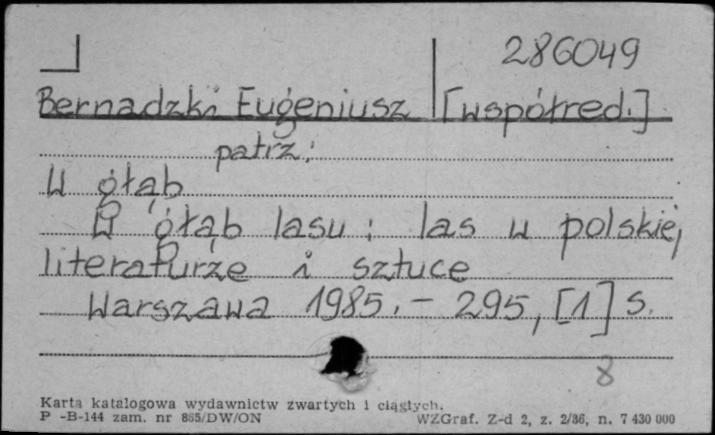 286049
Bernadzki Eugeniusz [współred.]
patrz:
W głąb
W głąb lasu : las w polskiej
literaturze i sztuce
Warszawa 1985. – 295, [1] s.
8
Karta katalogowa wydawnictw zwartych i ciągłych.
P -B-144 zam. nr 865/DW/ON WZGraf. Z-d 2, z. 2/86, n. 7 430 000